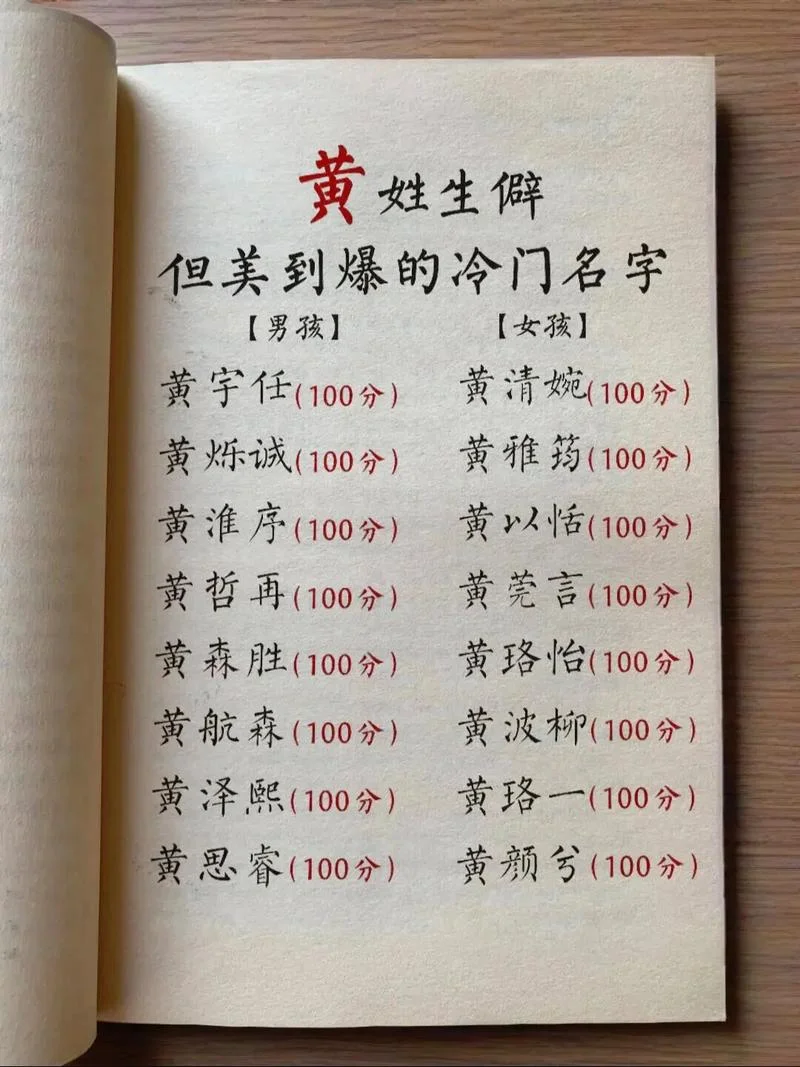 黄姓生僻
但美到爆的冷门名字
【男孩】 【女孩】
黄宇任(100分) 黄清婉(100分)
黄烁诚(100分) 黄雅筠(100分)
黄淮序(100分) 黄以恬(100分)
黄哲再(100分) 黄莞言(100分)
黄森胜(100分) 黄珞怡(100分)
黄航森(100分) 黄波柳(100分)
黄泽熙(100分) 黄珞一(100分)
黄思睿(100分) 黄颜兮(100分)